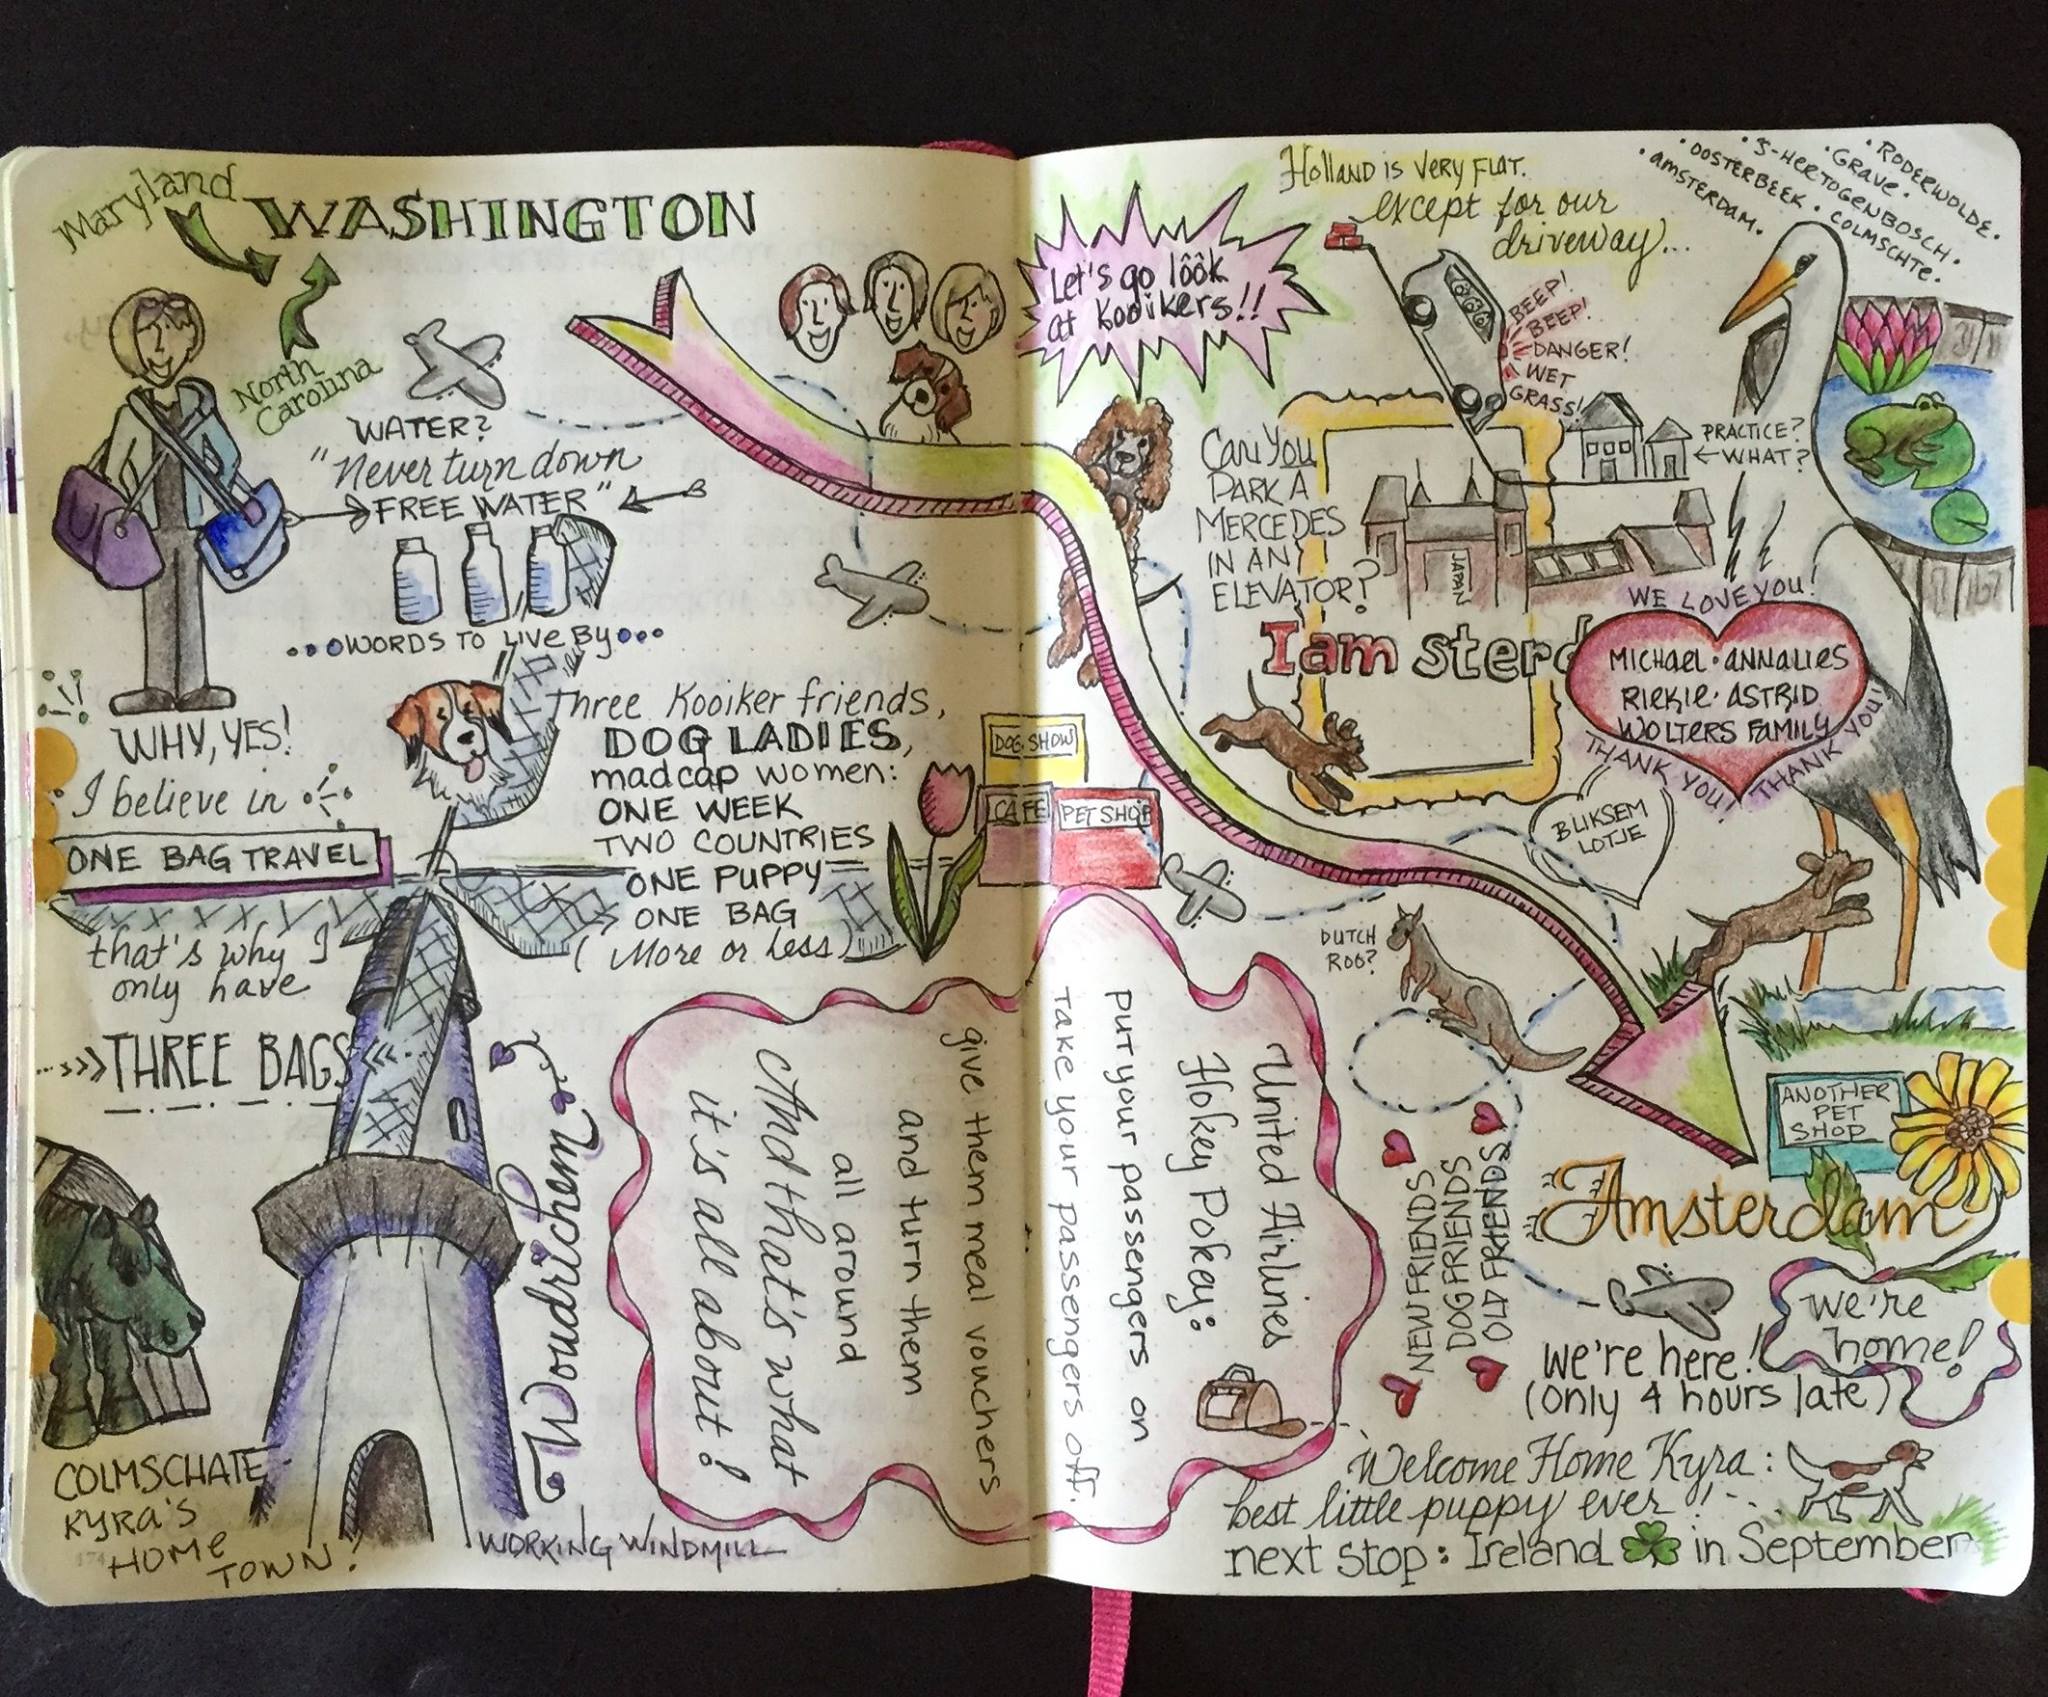 Maryland
WASHINGTON
North
Carolina
WATER?
"Never turn down
FREE WATER"
WORDS TO LIVE BY
WHY, YES!
I believe in
ONE BAG TRAVEL
that's why I
only have
THREE BAGS
Three Kooiker friends,
DOG LADIES,
madcap women:
ONE WEEK
TWO COUNTRIES
ONE PUPPY
ONE BAG
(More or Less)
COLMSCHATE
KYRA'S
HOME
TOWN!
Woudrichem
WORKING WINDMILL
DOG SHOW
CAFE
PET SHOP
United Airlines
Hokey Pokey:
put your passengers on
take your passengers off.
give them meal vouchers
and turn them
all around
And that's what
it's all about!
Let's go lôôk
at Kooikers!!
HOLLAND IS VERY FLAT.
except for our
driveway...
BEEP!
BEEP!
DANGER!
WET
GRASS!
• RODERWOLDE.
• GRAVE.
• S-HERTOGENBOSCH.
• OOSTERBEEK • COLMSCHTE.
• AMSTERDAM.
CAN YOU
PARK A
MERCEDES
IN AN
ELEVATOR?
PRACTICE?
WHAT?
JAPAN
I am sterd
WE LOVE YOU!
MICHAEL • ANNALIES
RIEKIE • ASTRID
WOLTERS FAMILY
THANK YOU! THANK YOU!
BLIKSEM
LOTJE
DUTCH
ROO?
ANOTHER
PET
SHOP
Amsterdam
NEW FRIENDS
DOG FRIENDS
OLD FRIENDS
we're
home!
We're here!
(only 4 hours late)
Welcome Home Kyra:
best little puppy ever!
next stop: Ireland in September